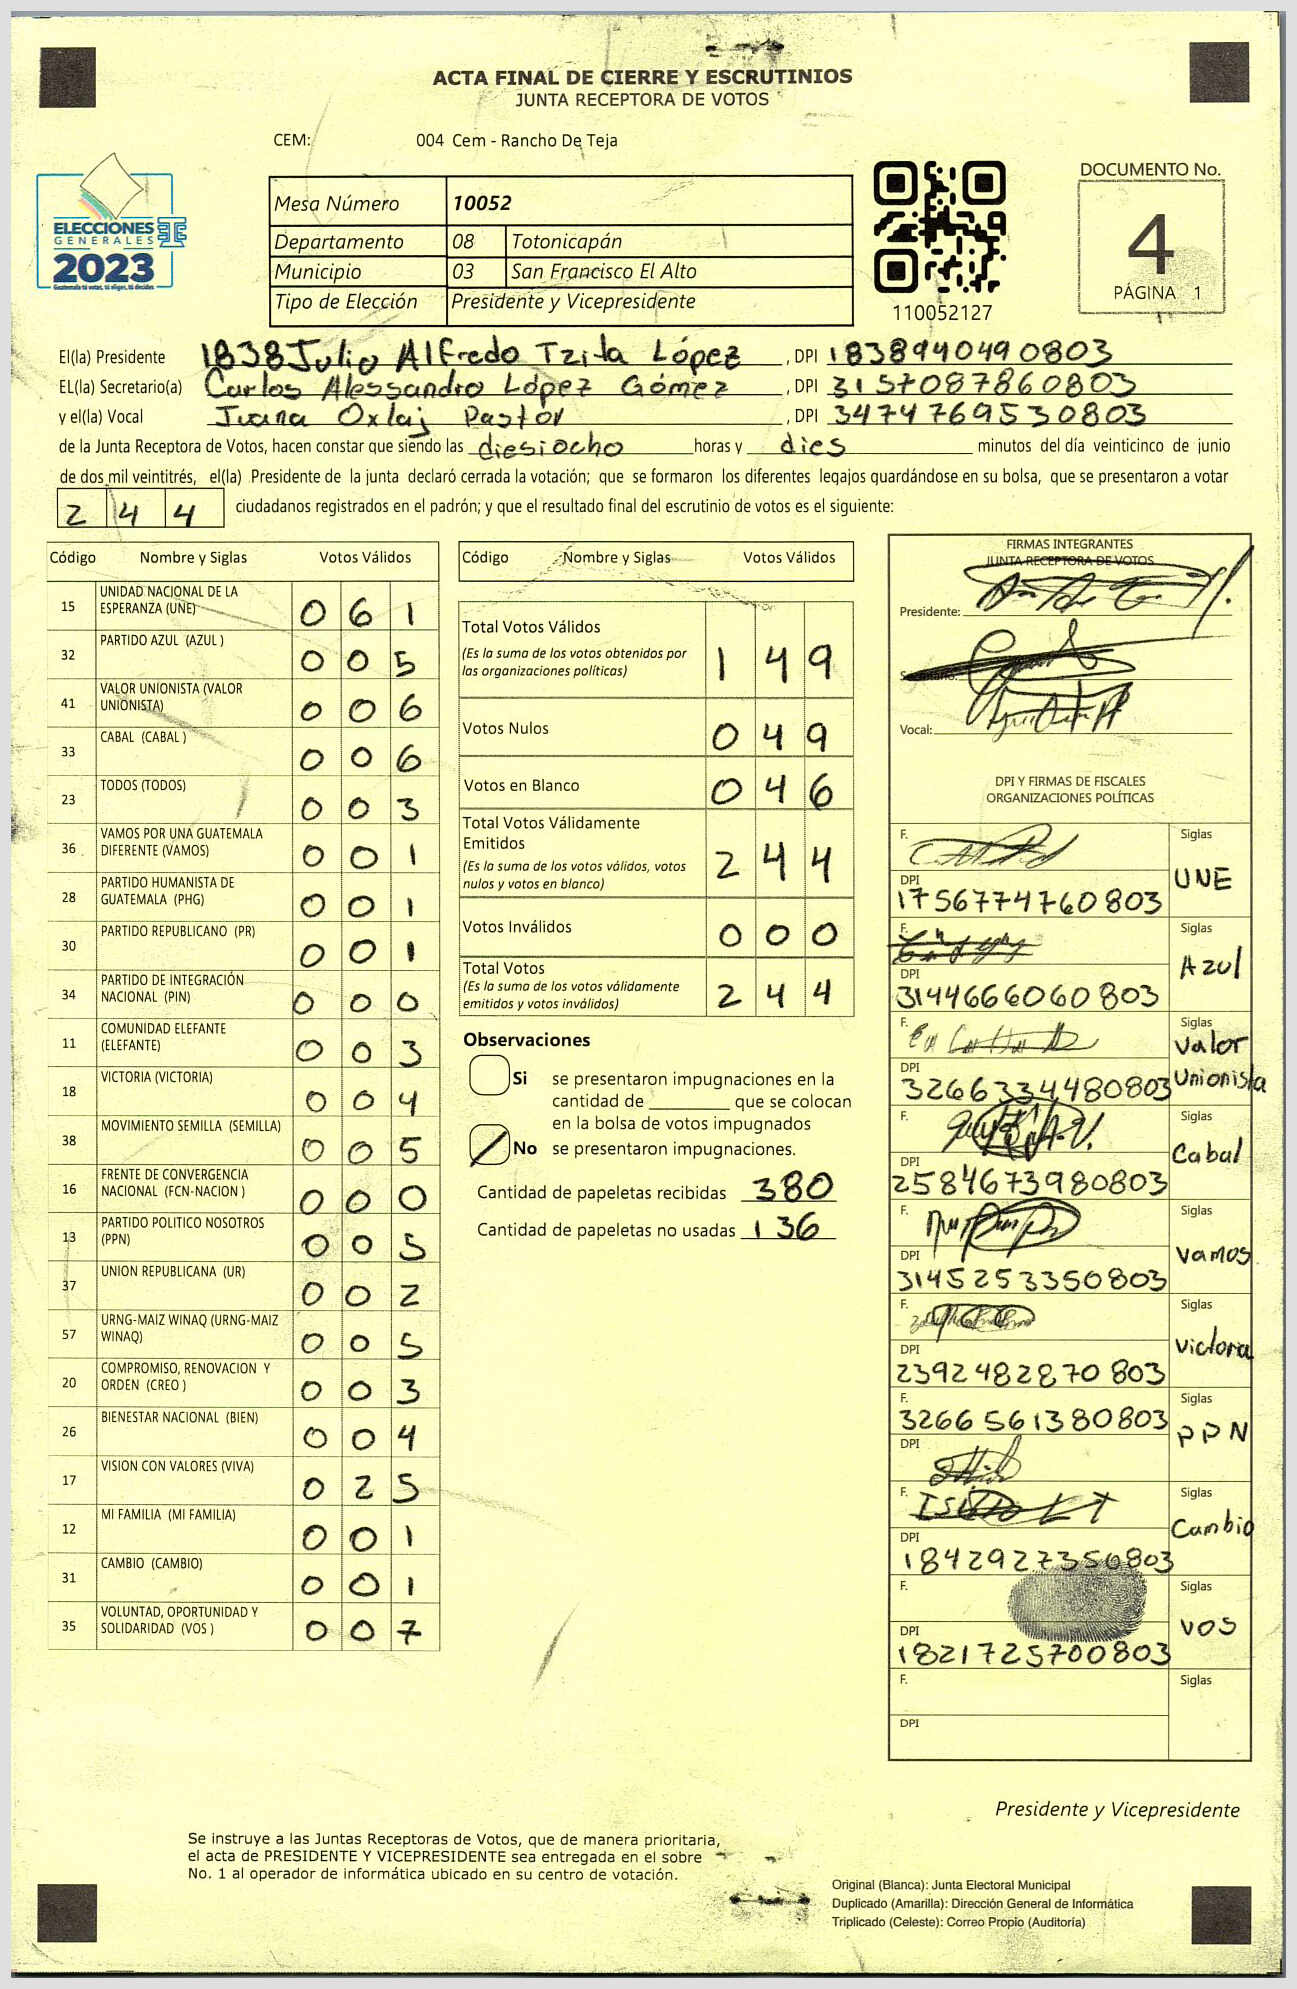 ACTA FINAL DE CIERRE Y ESCRUTINIOS
JUNTA RECEPTORA DE VOTOS
CEM: 004 Cem - Rancho De Teja
ELECCIONES
GENERALES
2023
Guatemala tú votas, tú eliges, tú decides
Mesa Número 10052
Departamento 08 Totonicapán
Municipio 03 San Francisco El Alto
Tipo de Elección Presidente y Vicepresidente
110052127
DOCUMENTO No.
4
PÁGINA 1
El(la) Presidente 1838Julio Alfredo Tzita López, DPI 1838940490803
EL(la) Secretario(a) Carlos Alessandro López Gómez, DPI 3157087860803
y el(la) Vocal Juana Oxlaj Pastor, DPI 3474769530803
de la Junta Receptora de Votos, hacen constar que siendo las diesiocho horas y dies minutos del día veinticinco de junio
de dos mil veintitrés, el(la) Presidente de la junta declaró cerrada la votación; que se formaron los diferentes legajos guardándose en su bolsa, que se presentaron a votar
2 4 4 ciudadanos registrados en el padrón; y que el resultado final del escrutinio de votos es el siguiente:
Código Nombre y Siglas Votos Válidos
15 UNIDAD NACIONAL DE LA
ESPERANZA (UNE) 0 6 1
32 PARTIDO AZUL (AZUL ) 0 0 5
41 VALOR UNIONISTA (VALOR
UNIONISTA) 0 0 6
33 CABAL (CABAL ) 0 0 6
23 TODOS (TODOS) 0 0 3
36 VAMOS POR UNA GUATEMALA
DIFERENTE (VAMOS) 0 0 1
28 PARTIDO HUMANISTA DE
GUATEMALA (PHG) 0 0 1
30 PARTIDO REPUBLICANO (PR) 0 0 1
34 PARTIDO DE INTEGRACIÓN
NACIONAL (PIN) 0 0 0
11 COMUNIDAD ELEFANTE
(ELEFANTE) 0 0 3
18 VICTORIA (VICTORIA) 0 0 4
38 MOVIMIENTO SEMILLA (SEMILLA) 0 0 5
16 FRENTE DE CONVERGENCIA
NACIONAL (FCN-NACION ) 0 0 0
13 PARTIDO POLITICO NOSOTROS
(PPN) 0 0 5
37 UNION REPUBLICANA (UR) 0 0 2
57 URNG-MAIZ WINAQ (URNG-MAIZ
WINAQ) 0 0 5
20 COMPROMISO, RENOVACION Y
ORDEN (CREO ) 0 0 3
26 BIENESTAR NACIONAL (BIEN) 0 0 4
17 VISION CON VALORES (VIVA) 0 2 5
12 MI FAMILIA (MI FAMILIA) 0 0 1
31 CAMBIO (CAMBIO) 0 0 1
35 VOLUNTAD, OPORTUNIDAD Y
SOLIDARIDAD (VOS ) 0 0 7
Código Nombre y Siglas Votos Válidos
Total Votos Válidos
(Es la suma de los votos obtenidos por
las organizaciones políticas) 1 4 9
Votos Nulos 0 4 9
Votos en Blanco 0 4 6
Total Votos Válidamente
Emitidos
(Es la suma de los votos válidos, votos
nulos y votos en blanco) 2 4 4
Votos Inválidos 0 0 0
Total Votos
(Es la suma de los votos válidamente
emitidos y votos inválidos) 2 4 4
Observaciones
Si se presentaron impugnaciones en la
cantidad de ________ que se colocan
en la bolsa de votos impugnados
No se presentaron impugnaciones.
Cantidad de papeletas recibidas 380
Cantidad de papeletas no usadas 136
FIRMAS INTEGRANTES
JUNTA RECEPTORA DE VOTOS
Presidente:
Vocal:
DPI Y FIRMAS DE FISCALES
ORGANIZACIONES POLÍTICAS
F. Siglas
UNE
DPI
1756774760803
F. Siglas
Azul
DPI
3144666060803
F. Siglas
Valor
Unionista
DPI
3266334480803
F. Siglas
Cabal
DPI
2584673980803
F. Siglas
Vamos
DPI
3145253350803
F. Siglas
Victoria
DPI
2392482870803
F. Siglas
3266561380803
PPN
DPI
F. Siglas
Cambio
DPI
1842927350803
F. Siglas
VOS
DPI
1821725700803
F. Siglas
DPI
Presidente y Vicepresidente
Se instruye a las Juntas Receptoras de Votos, que de manera prioritaria,
el acta de PRESIDENTE Y VICEPRESIDENTE sea entregada en el sobre
No. 1 al operador de informática ubicado en su centro de votación.
Original (Blanca): Junta Electoral Municipal
Duplicado (Amarilla): Dirección General de Informática
Triplicado (Celeste): Correo Propio (Auditoría)